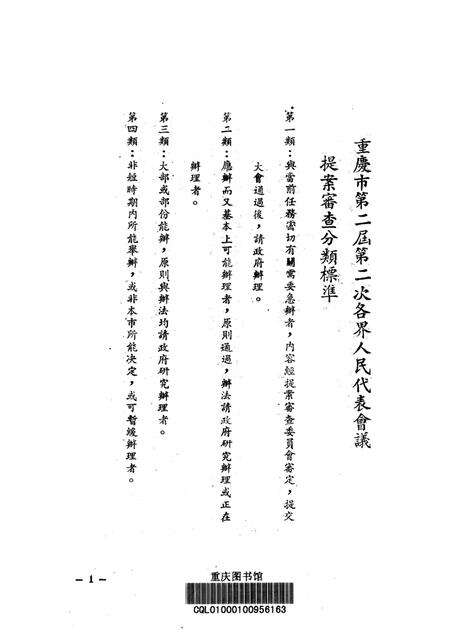 重慶市第二屆第二次各界人民代表會議
提案審查分類標準
第一類：與當前任務密切有關需要急辦者，內容經提案審查委員會審定，提交
大會通過後，請政府辦理。
第二類：應辦而又基本上可能辦理者，原則通過，辦法請政府研究辦理或正在
辦理者。
第三類：大部或部份能辦，原則與辦法均請政府研究辦理者。
第四類：非短時期內所能舉辦，或非本市所能决定，或可暫緩辦理者。
— 1 —
重庆图书馆
CQL01000100956163